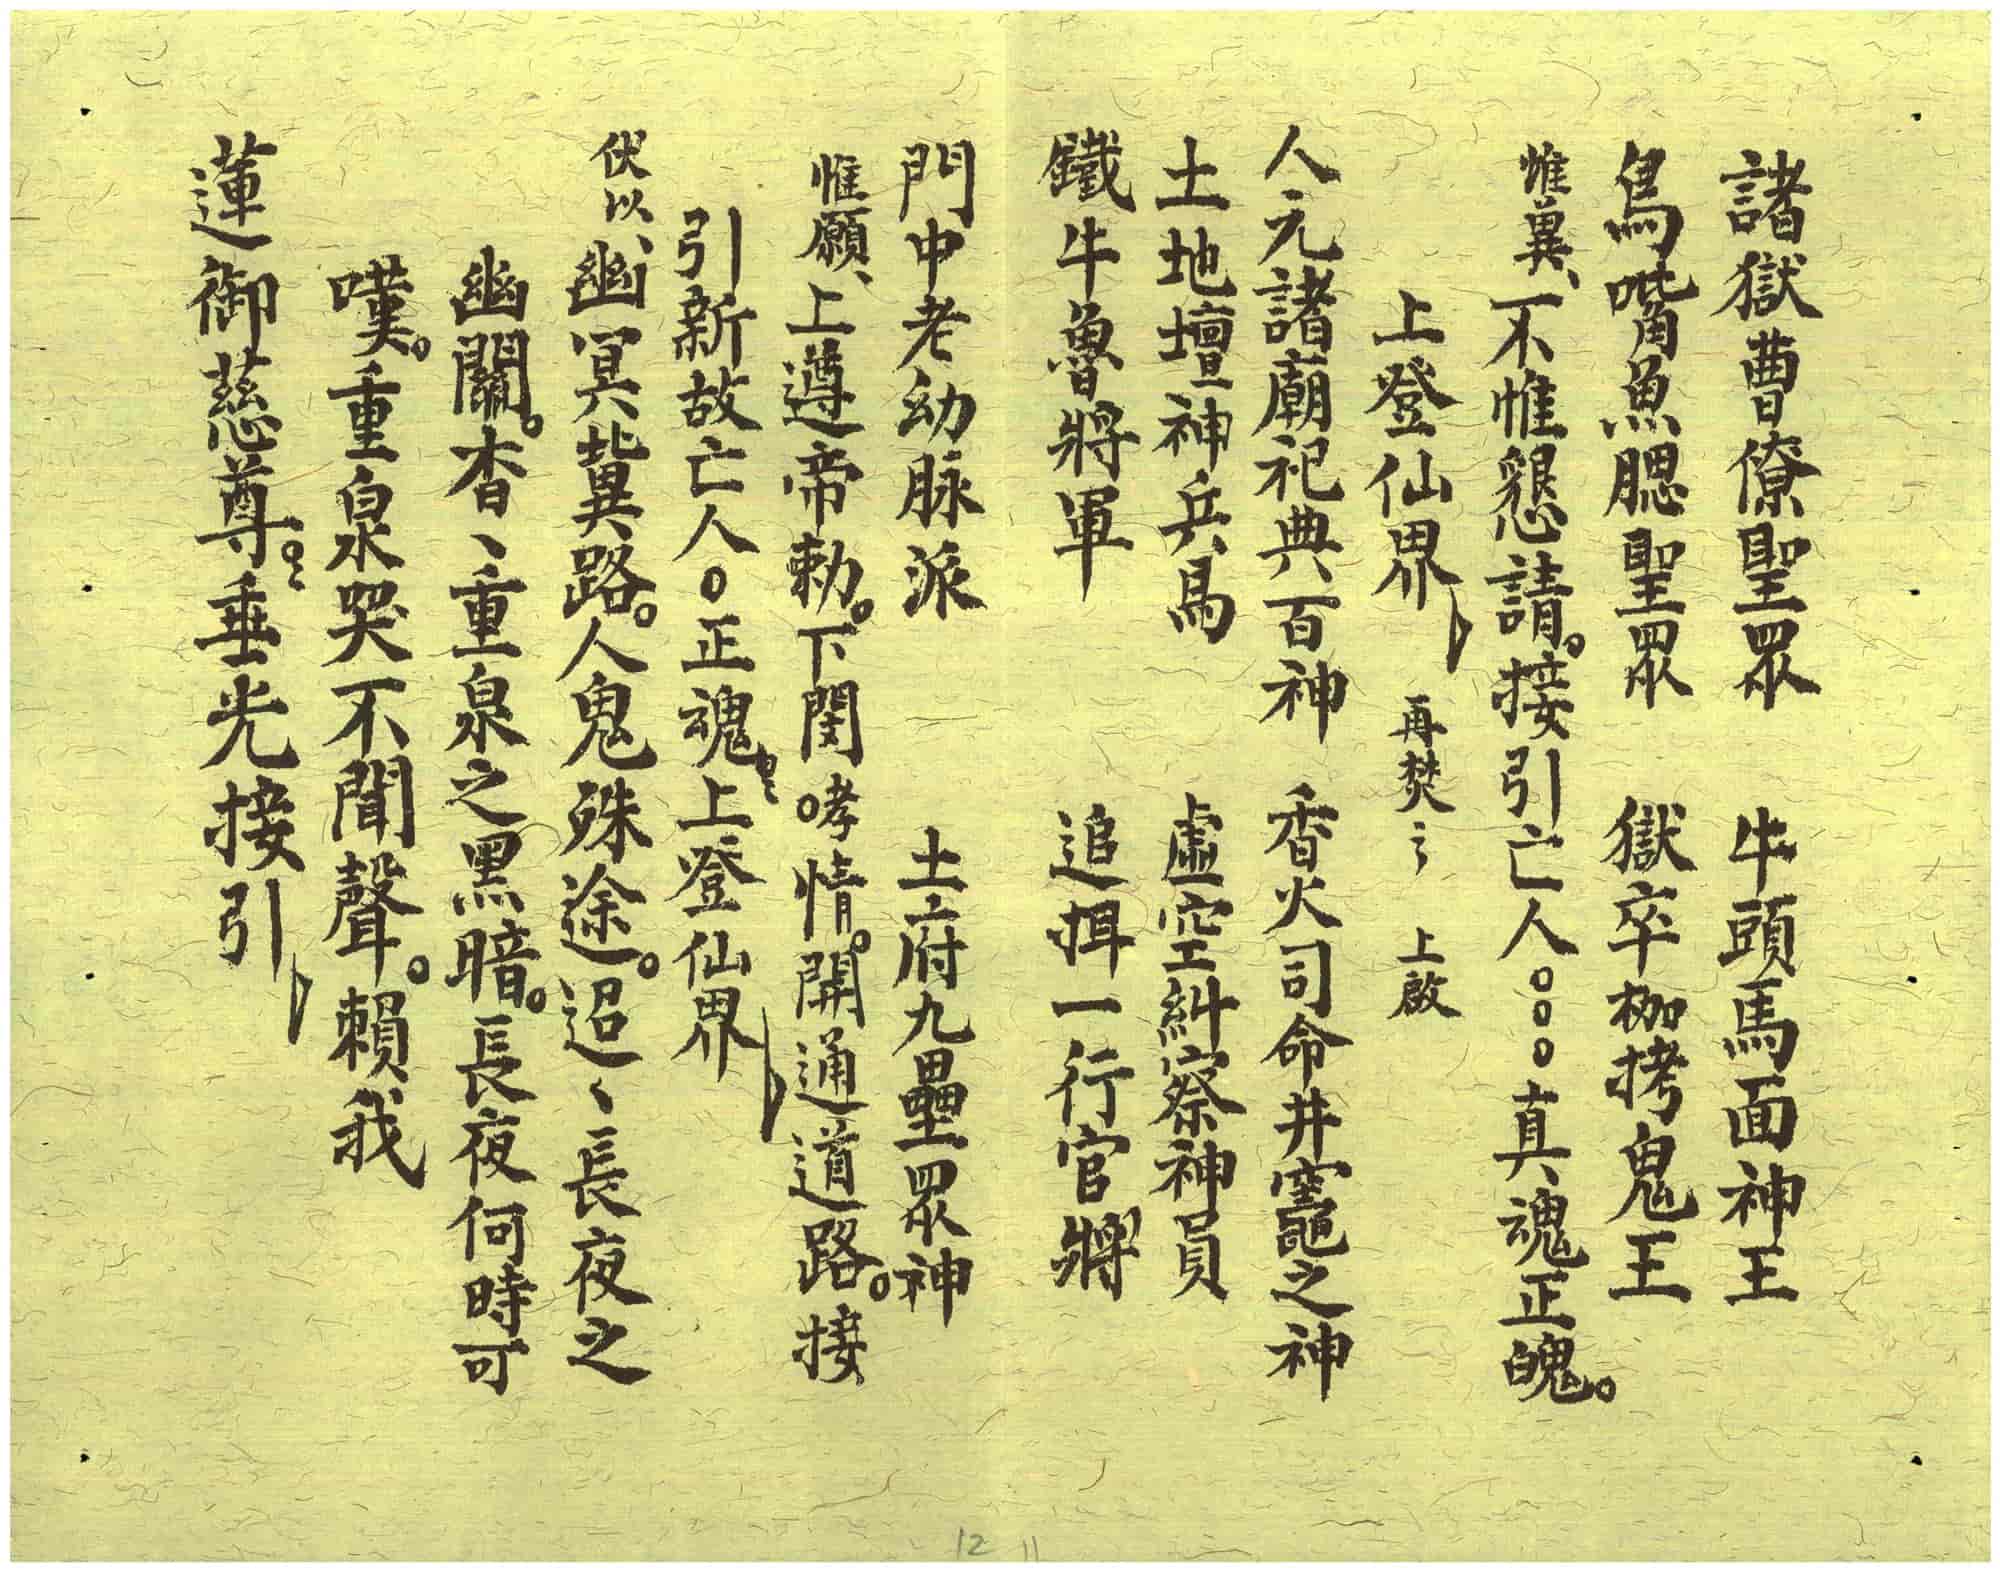 諸獄曹僚聖眾　牛頭馬面神王
鳥嘴魚腮聖眾　獄卒枷拷鬼王
惟冀、不惟懇請。接引亡人。。。真魂正魄。
上登仙界　再焚〻　上啟
人元諸廟祀典百神　香火司命井竈之神
土地壇神兵馬　虛空糾察神員
鐵牛魯將軍　追押一行官將
門中老幼脉派　土府九壘眾神
惟願、上遵帝勅。下閔。哮情。開通道路。接
引新故亡人。正魂上登仙界
伏以、幽冥冀路。人鬼殊途。迢、長夜之
幽關。杳、重泉之黑暗。長夜何時可
嘆。重泉哭不聞聲。賴我
蓮御慈尊。垂光接引
12 11